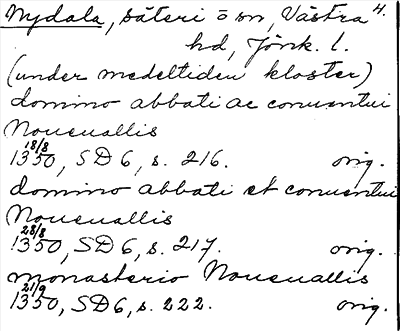 Nydala, säteri o sn, Västra 4.
hd, Jönk. l.
(under medeltiden kloster)
domino abbati ac conuentui
Noueuallis
18/8
1350, SD 6, s. 216. orig.
domino abbati et conuentui
Noueuallis
28/8
1350, SD 6, s. 217. orig.
monasterio Noueuallis
21/9
1350, SD 6, s. 222. orig.